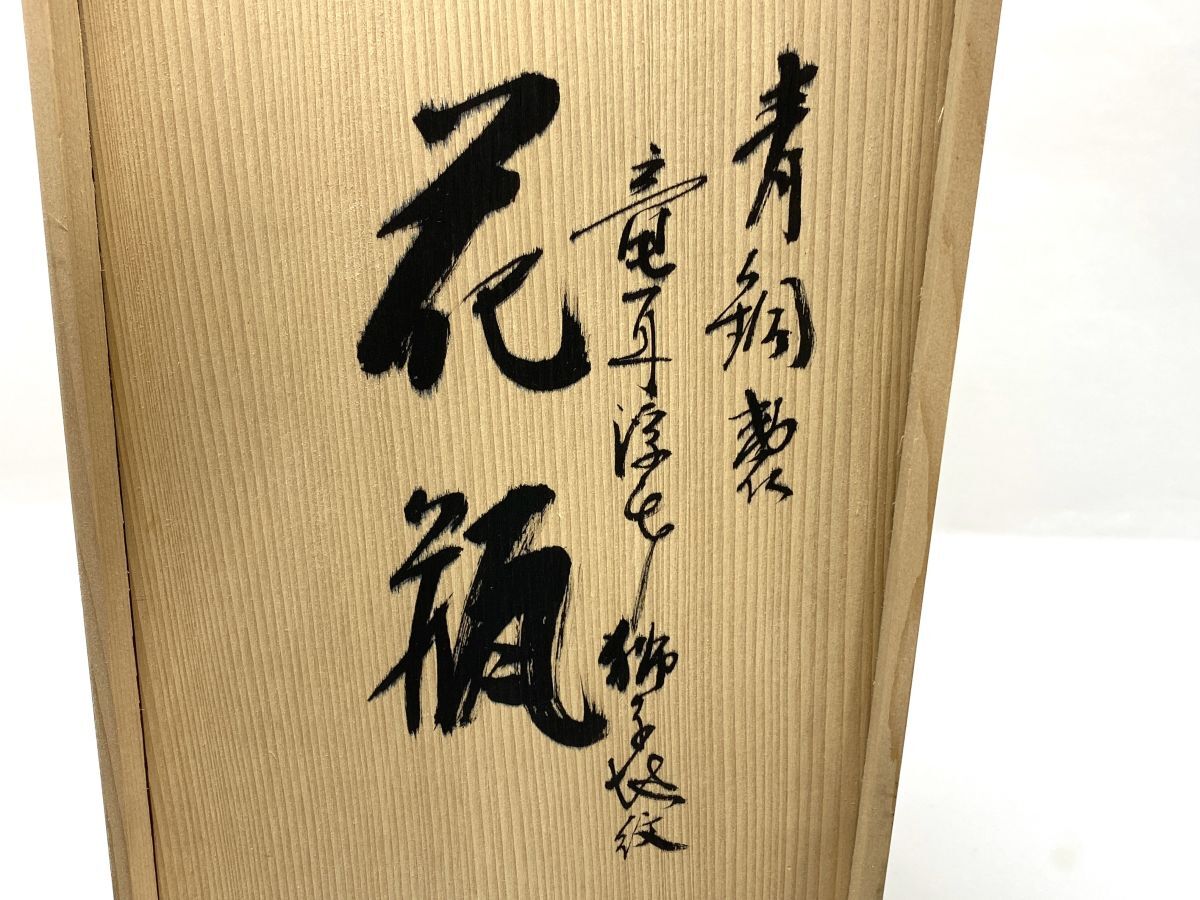 青銅製
竜耳浮牡獅子地紋
花瓶